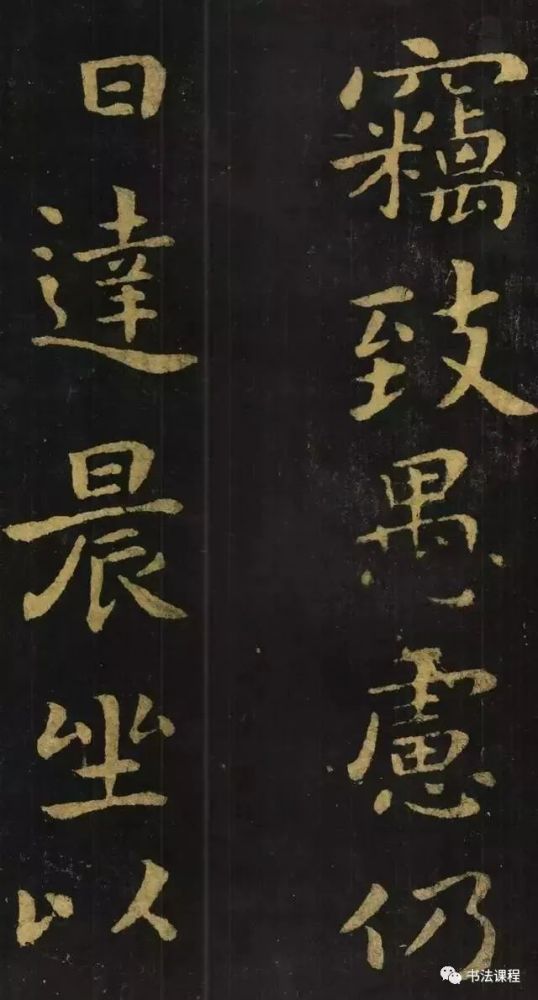 竊致愚慮仍
日達晨坐以
书法课程